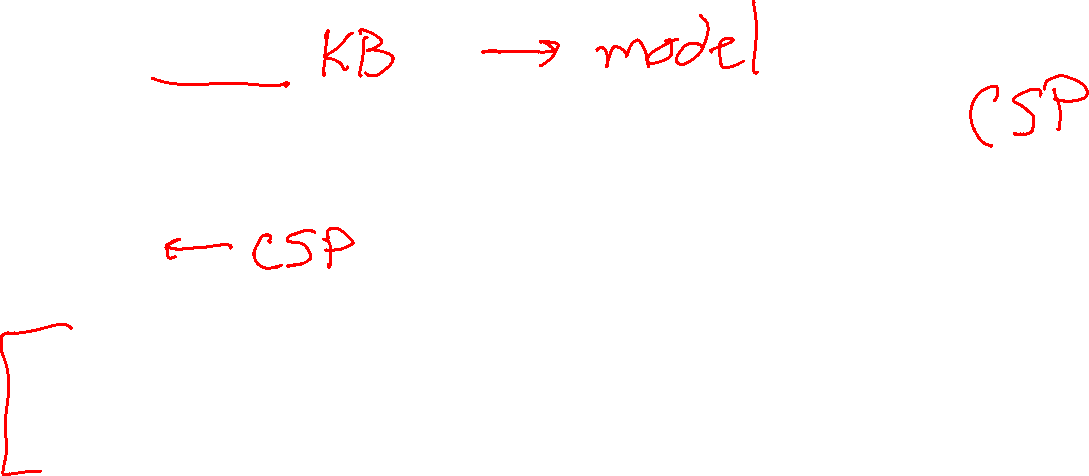 KB → model
CSP
← CSP